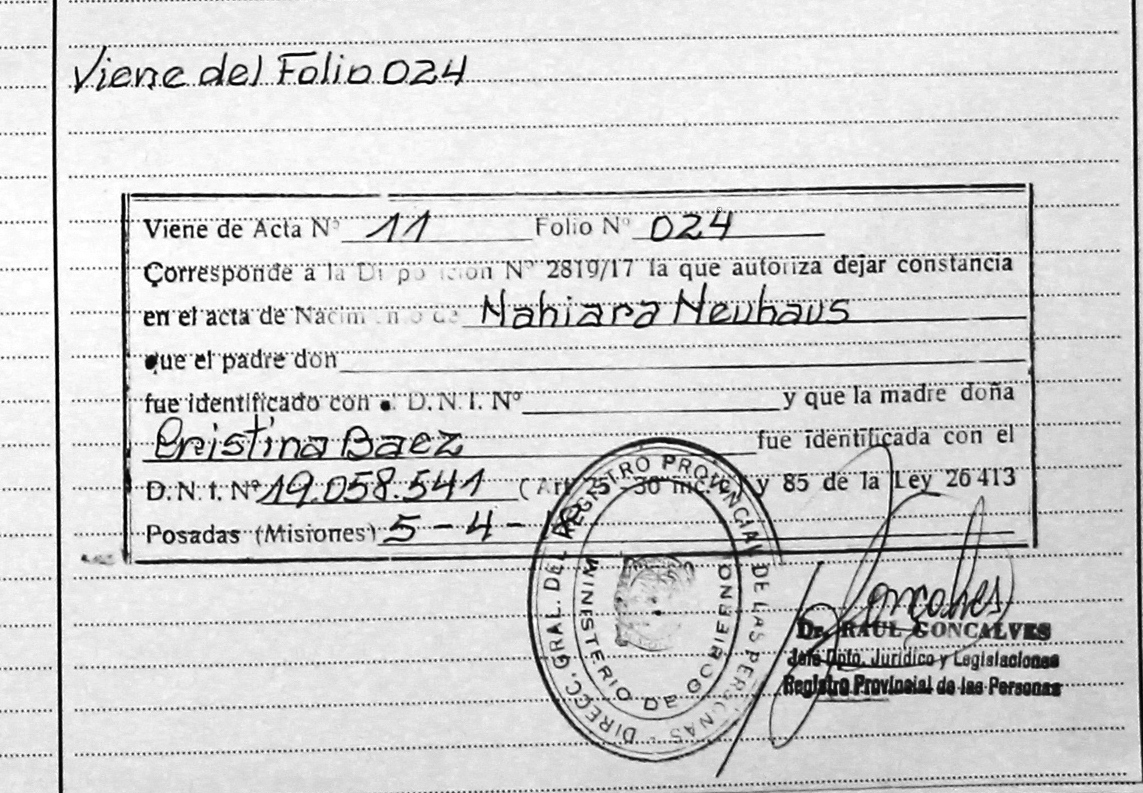 Viene del Folio 024
Viene de Acta Nº 11 Folio Nº 024
Corresponde a la Disposición Nº 2819/17 la que autoriza dejar constancia
en el acta de Nacimiento de Nahiara Neuhaus
que el padre don
fue identificado con el D.N.I. Nº y que la madre doña
Cristina Baez fue identificada con el
D.N.I. Nº 19.058.541 (Art. 25 - 30 inc. y 85 de la Ley 26413
Posadas (Misiones) 5-4-18
DIRECC. GRAL. DEL REGISTRO PROVINCIAL DE LAS PERSONAS -
MINISTERIO DE GOBIERNO
Goncalves
Dr. RAUL GONCALVES
Jefe Dpto. Jurídico y Legislaciones
Registro Provincial de las Personas